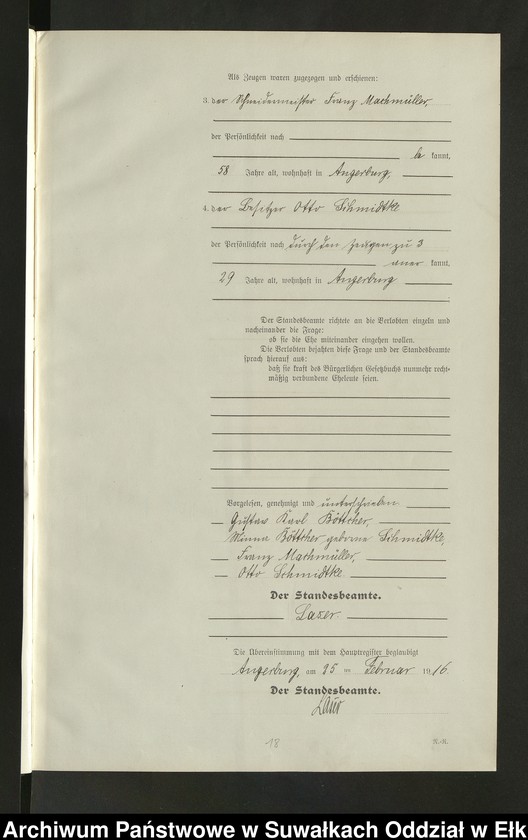 Als Zeugen waren zugezogen und erschienen:
3. der Schneidermeister Franz Machmüller,
der Persönlichkeit nach
be kannt,
58 Jahre alt, wohnhaft in Angerburg,
4. der Besitzer Otto Schmidtke
der Persönlichkeit nach durch den Zeugen zu 3
aner kannt,
29 Jahre alt, wohnhaft in Angerburg
Der Standesbeamte richtete an die Verlobten einzeln und
nacheinander die Frage:
ob sie die Ehe miteinander eingehen wollen.
Die Verlobten bejahten diese Frage und der Standesbeamte
sprach hierauf aus:
daß sie kraft des Bürgerlichen Gesetzbuchs nunmehr recht-
mäßig verbundene Eheleute seien.
Vorgelesen, genehmigt und unterschrieben
Gustav Karl Böttcher,
Minna Böttcher geborne Schmidtke,
Franz Machmüller,
Otto Schmidtke.
Der Standesbeamte.
Die Übereinstimmung mit dem Hauptregister beglaubigt
Angerburg, am 25 ten Februar 1916.
Der Standesbeamte.
18
R.-R.
Archiwum Państwowe w Suwałkach Oddział w Ełku